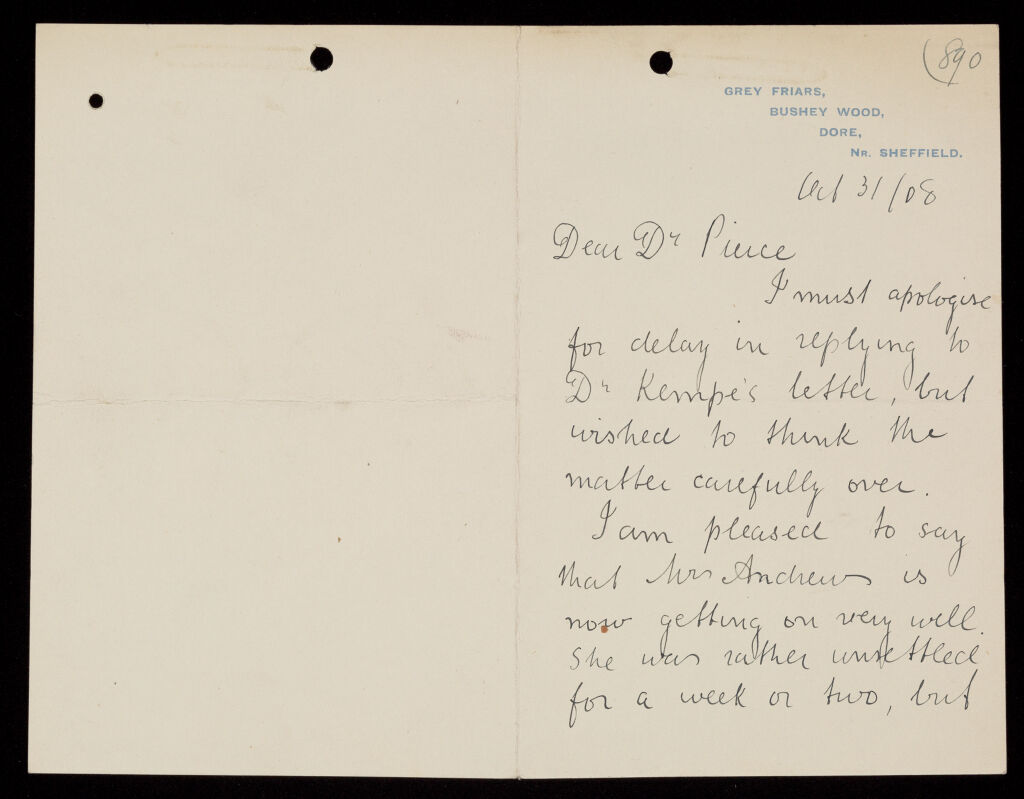 (890
GREY FRIARS,
BUSHEY WOOD,
DORE,
NR. SHEFFIELD.
Oct 31/08
Dear Dr Pierce
I must apologise
for delay in replying to
Dr Kempe's letter, but
wished to think the
matter carefully over.
I am pleased to say
that Mrs Andrews is
now getting on very well.
She was rather unsettled
for a week or two, but